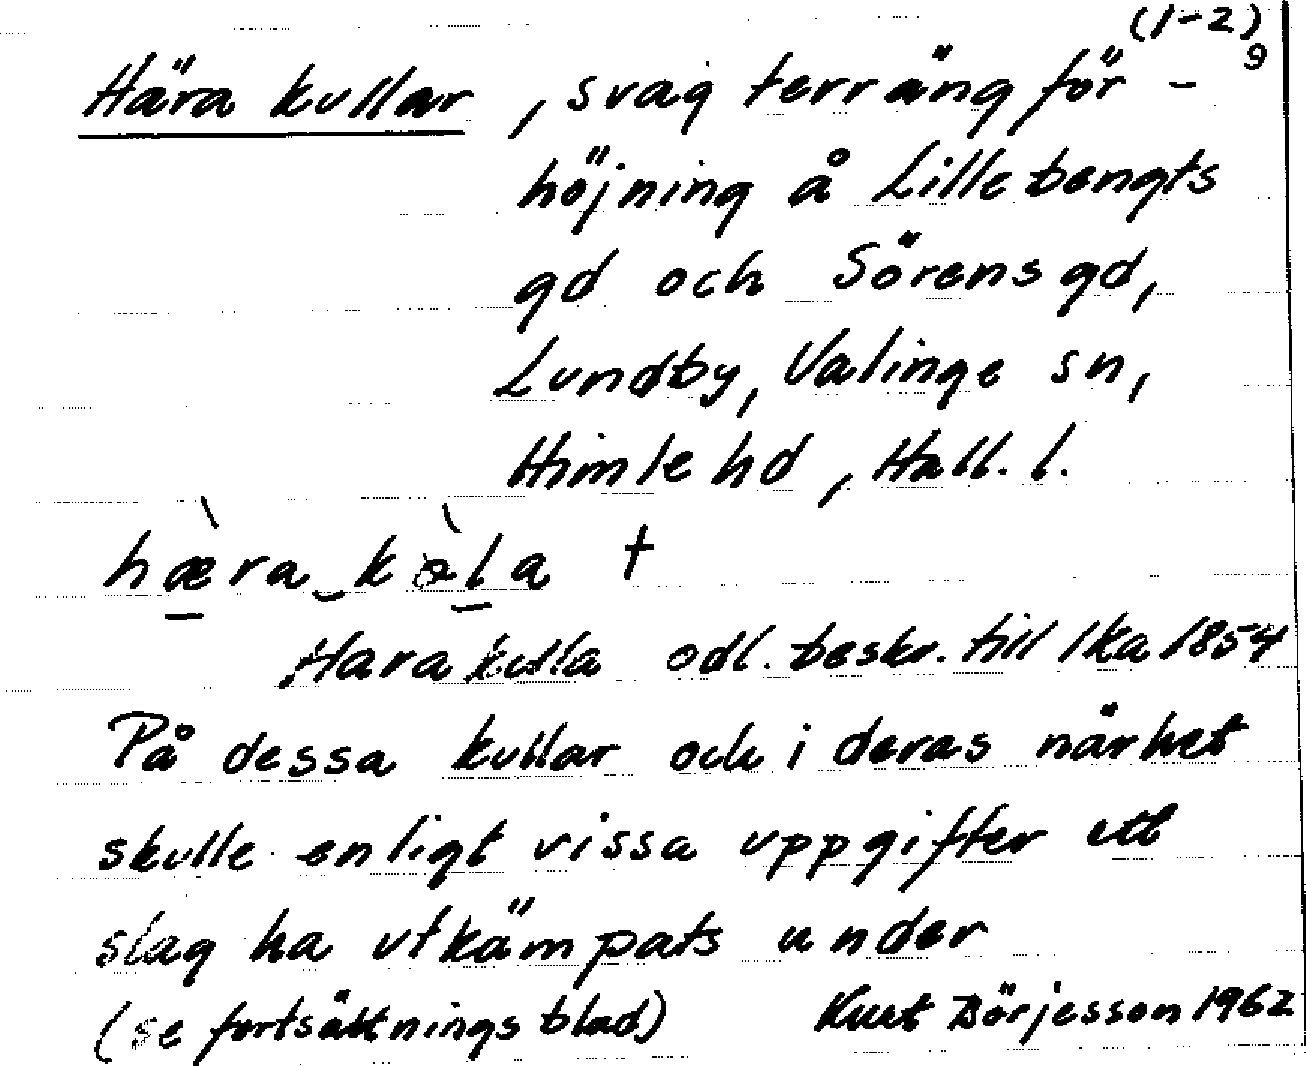 (1-2)
9
Hära kullar, svag terrängför-
höjning å Lillebengts
gd och Sörensgd,
Lundby, Valinge sn,
Himle hd, Hall. l.
hæ̀ra‿kò̵la †
Hara kulla odl. beskr. till lka 1854
På dessa kullar och i deras närhet
skulle enligt vissa uppgifter ett
slag ha utkämpats under
(se fortsättningsblad) Kurt Börjesson 1962